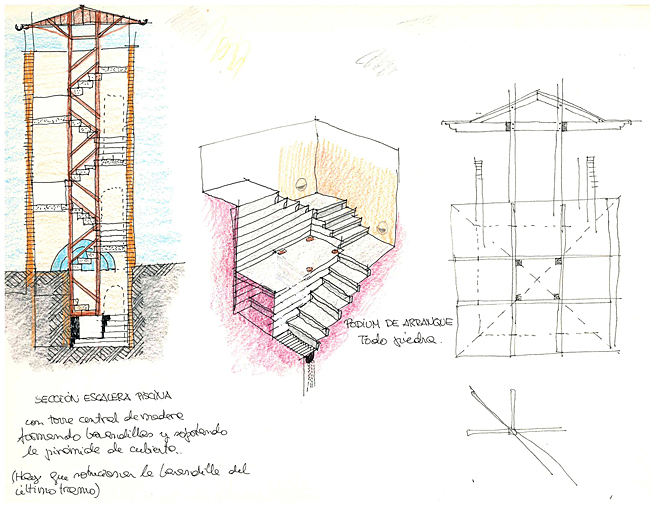 SECCIÓN ESCALERA PISCINA
con torre central de madera
formando barandillas y soportando
la pirámide de cubierta.
(Hay que solucionar la barandilla del
último tramo)
PODIUM DE ARRANQUE
Todo piedra.